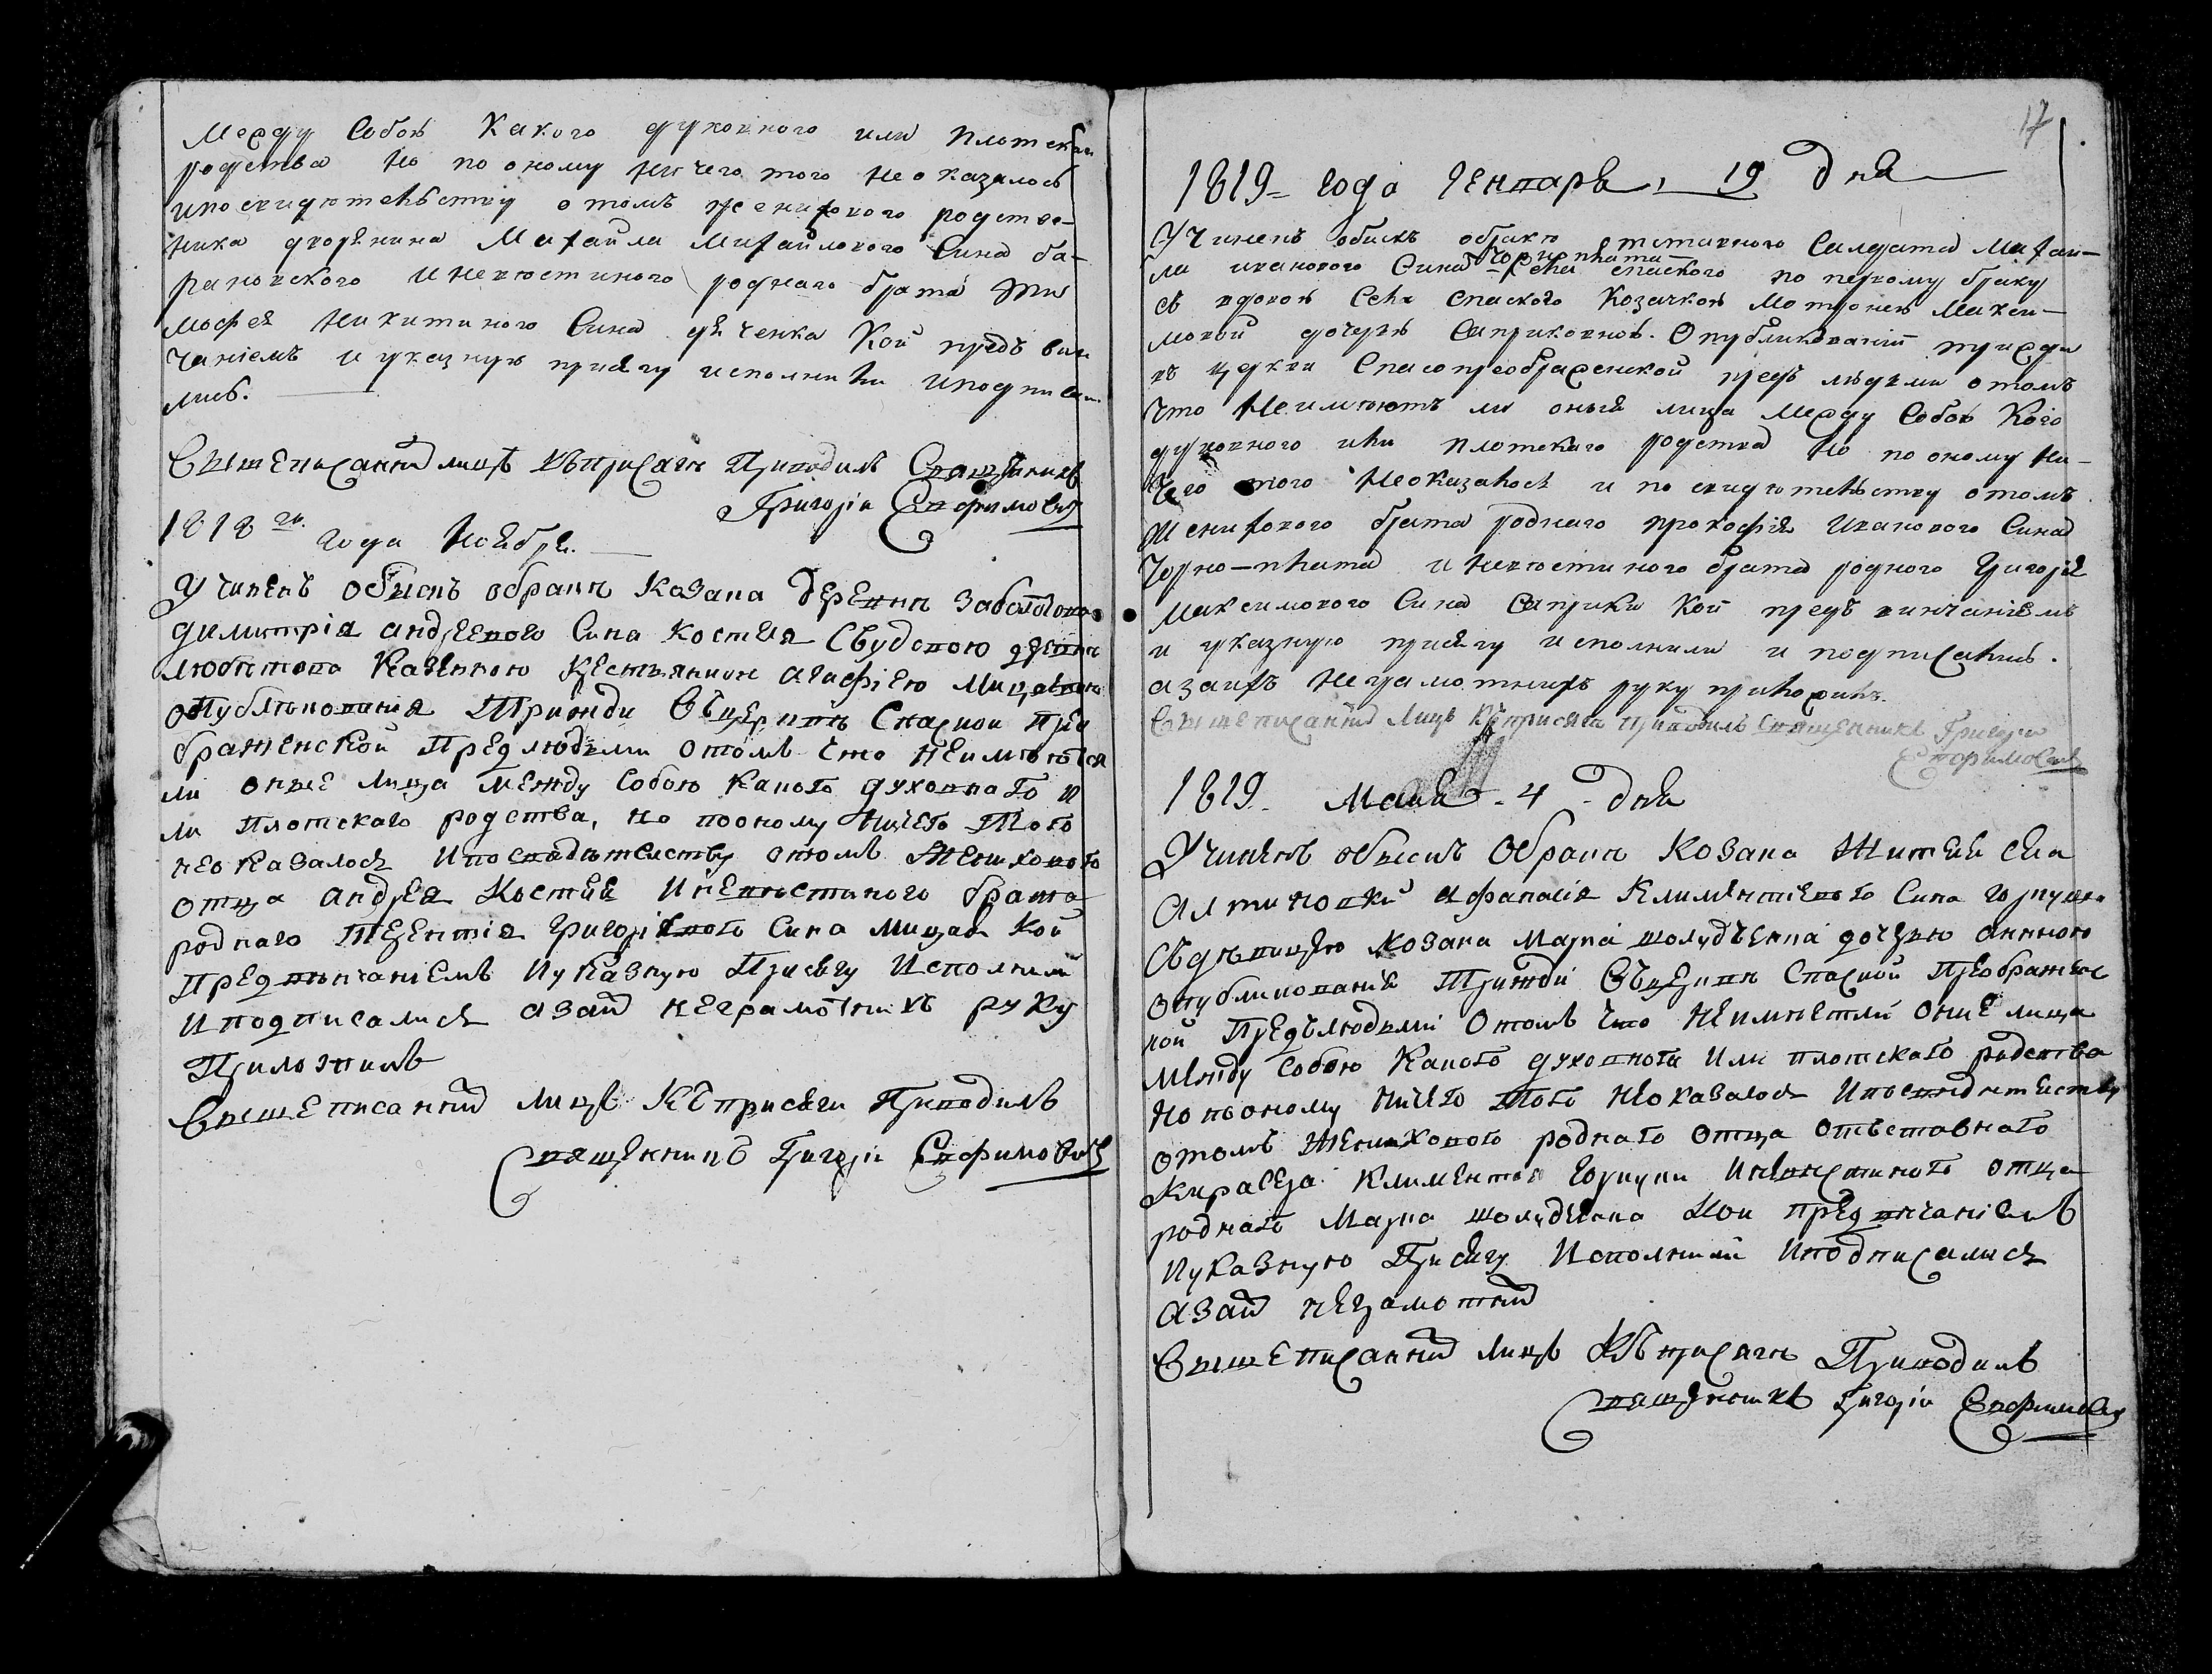 между собою какого духовного или плотскаго
родства но по оному ничего того неоказалось
ипосвидѣтельству отомъ женихового родстве-
ника дворянина Михайла Михайлового Сина ба-
рановского иневѣстиного роднаго брата Ти-
мофея Никитиного Сина дяченка Кои предъ вин
чаніемъ и указную присягу исполнили иподписа
лись.
Вышеписанній лицъ къприсягѣ приводилъ Священикъ
Григорій Євфимовичъ
1818го. года Ноября.
Учиненъ обыскъ обракѣ козака деревни
димитрія андреевого Сина Костия Свудовою деревни
казенною крестьянкою агафіею
опубликования Трижди Вцеркви Спаскои прео
браженской Пред людьми отомъ что неимѣются
ли оные лица между собою какого духовнаго и
ли плотскаго родства, но пооному ничего Того
неоказалося ипосвидѣтелству отомъ Женихового
отца андрея Костия иневѣстиного брата
роднаго Терентія григоріевого Сина Кои
Предвѣнчаніемъ иуказную Присягу исполнили
иподписалися азаи неграмотнихъ руку
Приложилъ
Вышеписанній лицъ Къприсяги Приводилъ
Священникъ Григорій Євфимовичъ
17
1819 года Генваря, 19 дня
Учиненъ обискъ обракѣ отставного Салдата Михаи-
ла иванового Сина села спаского по первому браку
съ вдовою села спаского козачкою Мотроною Макси-
мовой дочерью Саприковною. Опубликованіи трижди
въ церкви Спасопреображенской предъ людьми отомъ
что неимѣютъ ли оныя лица между собою кого
духовного или плотскаго родства но по оному ни-
чего того неоказалося и по свидѣтельству отомъ
женихового брата роднаго прокофія иванового Сина
Чорно-плата и невѣстиного брата родного Григорія
Максимового Сина Саприки кои предъ винчаніемъ
и указную присягу исполнили и подписались.
азаихъ неграмотнихъ руку приложилъ.
Вышеписанній лицъ къприсягѣ приводилъ священникъ Григорій
Євфимовичъ
1819. Маия - 4 - дня
Учиненъ обыскъ обракѣ козака Жителя села
афанасія Климентіевого Сина
Сдѣвицею козака Марка шолудченка дочерью анною
опубликованія Трижди Вцеркви Спаской Преображенс
кой Предълюдьми отомъ что неимѣетли оние лица
между собою какого духовнога или плотскаго родства
но пооному ничего Того неоказалося ипосвидѣтелству
отомъ Женихового роднаго отца отъставнаго
Кирасера Климентія иневѣстиного отца
роднаго Марка шолудченка кои предвѣнчаніемъ
иуказную Присягу исполнили иподписалися
азаи неграмотній
Вышеписанній лицъ Къприсягѣ Приводилъ
Священникъ Григорій Євфимовичъ